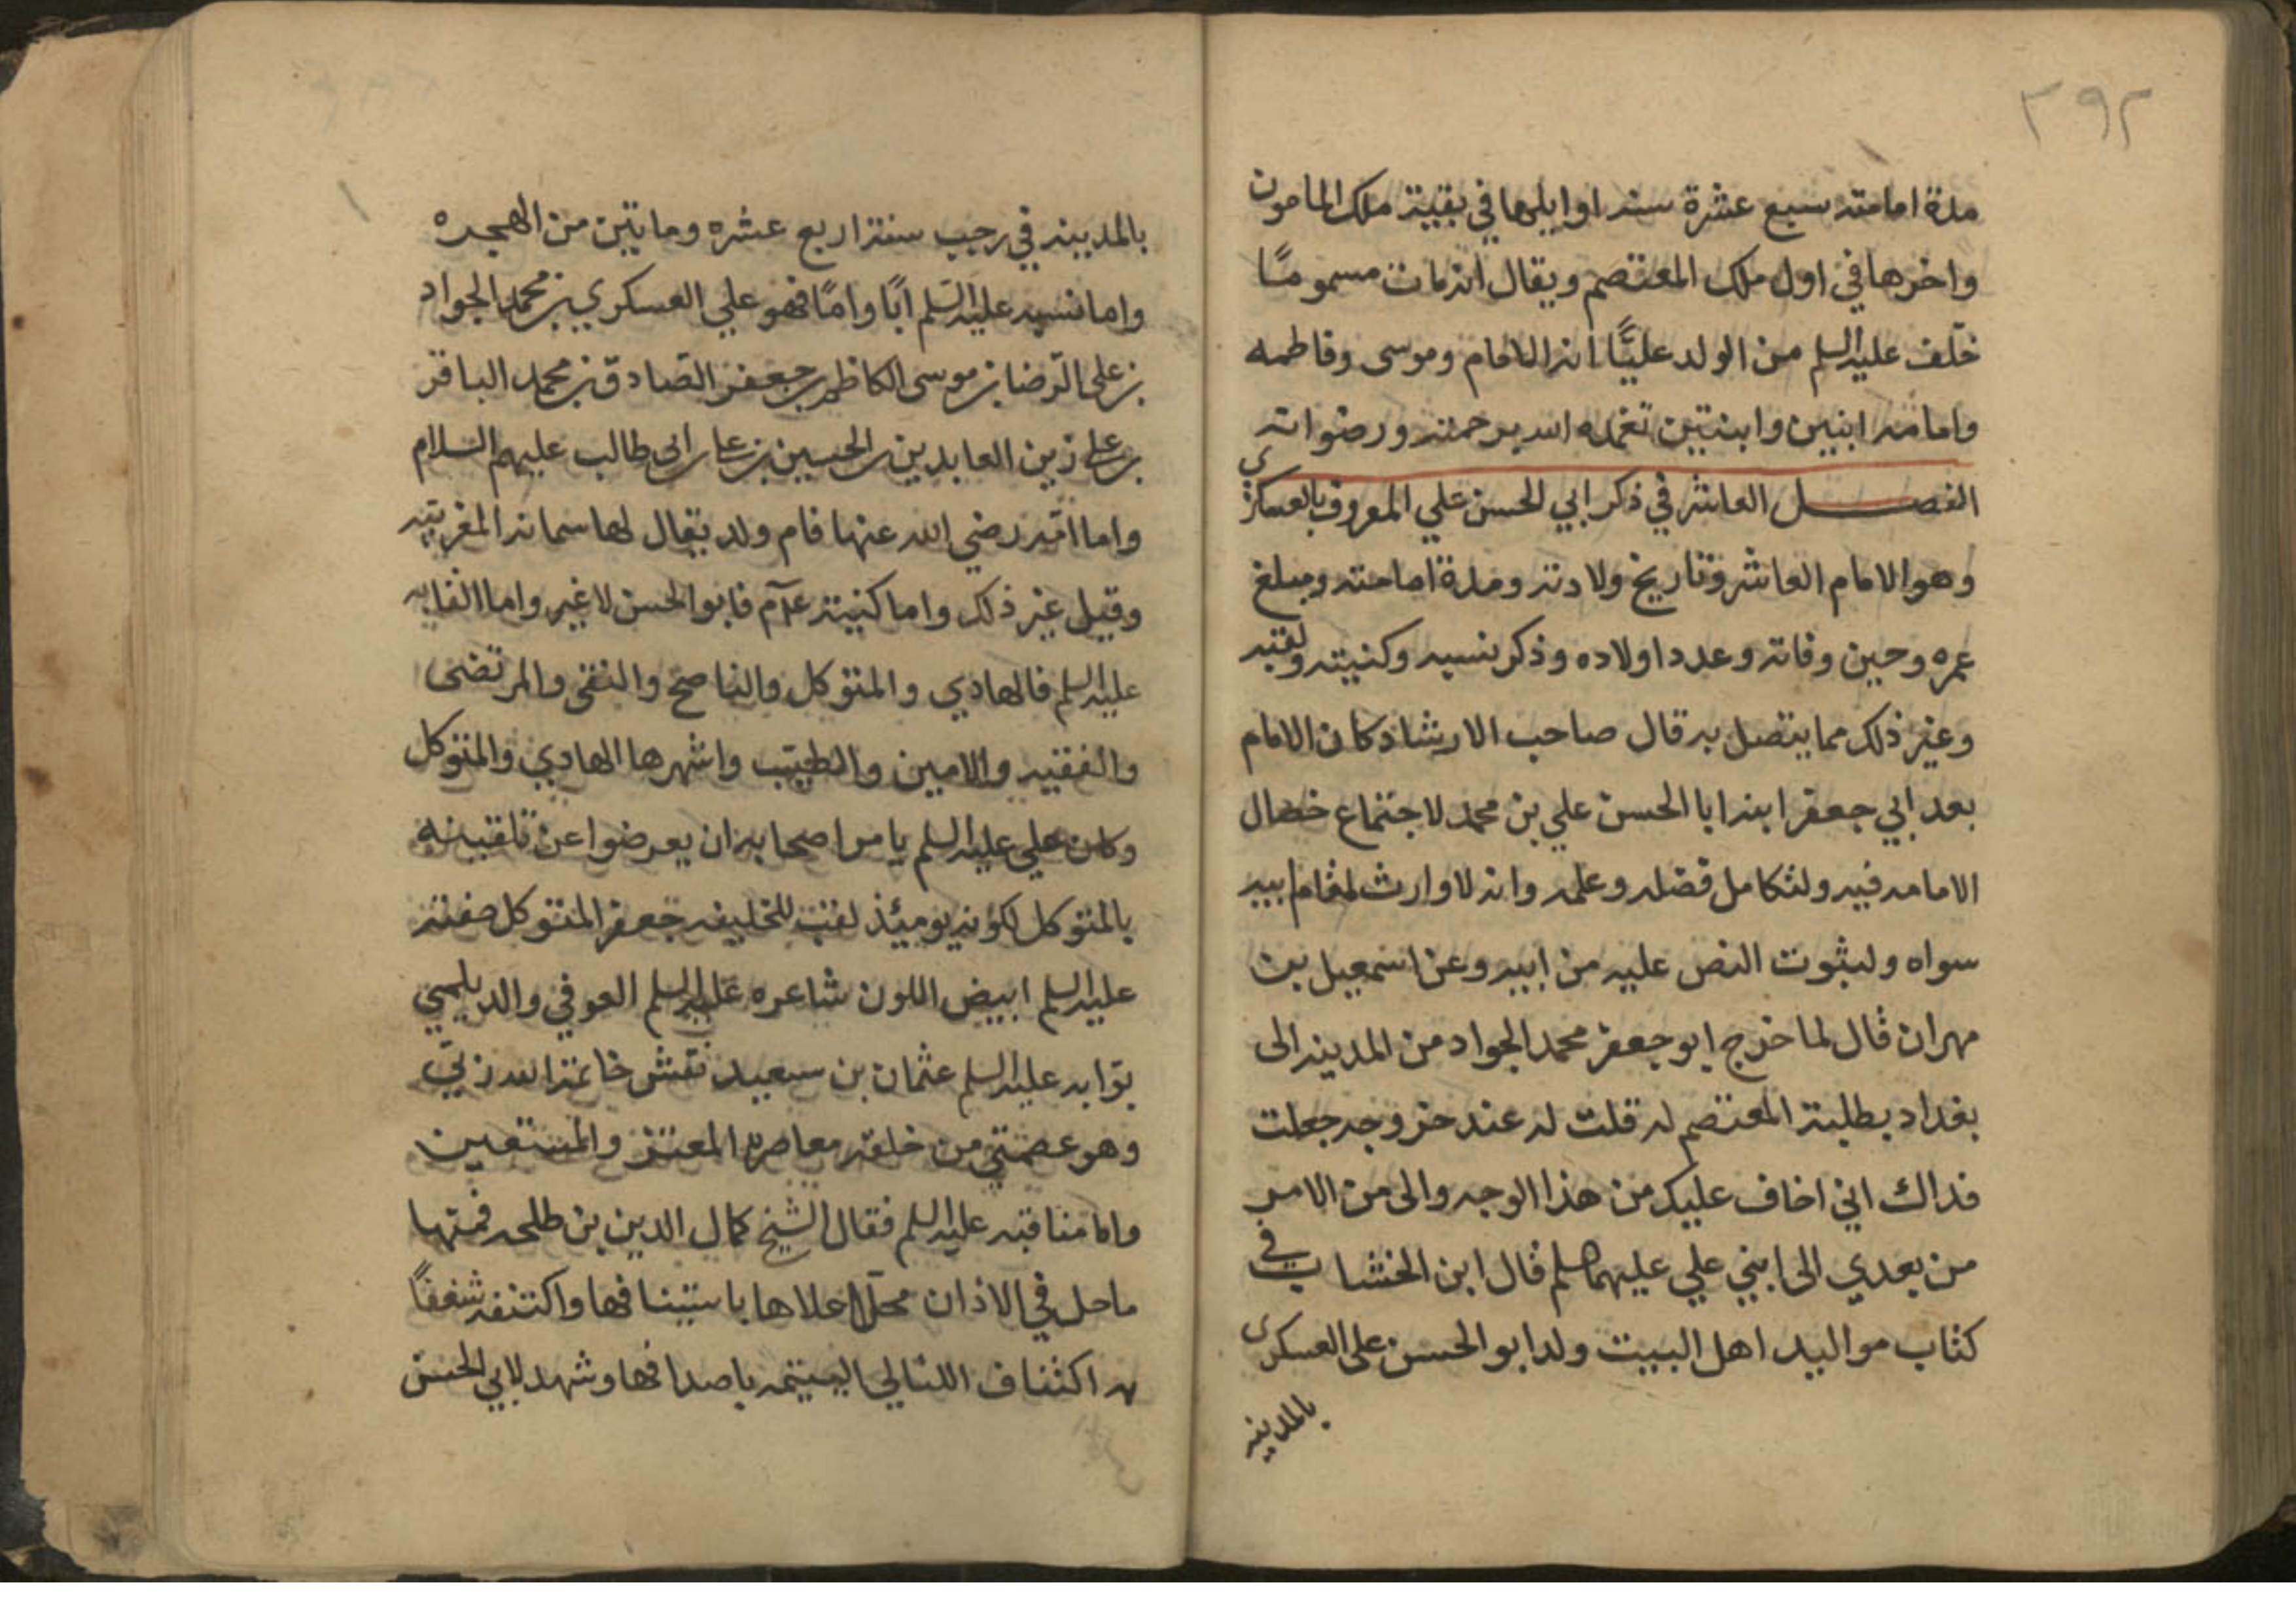 ٣٩٢
مدة امامته سبع عشرة سنه اوايلها في بقية ملك المامون
واخرها في اول ملك المعتصم ويقال انه مات مسموما
خلف عليه السلم من الولد عليًّا ابنه الامام وموسى وفاطمه
وامامه ابنين وابنتين تغمده الله برحمته ورضوانه
الفصل العاشر في ذكر ابي الحسن علي المعروف بالعسكري
وهو الامام العاشر وتاريخ ولادته ومدة امامته ومبلغ
عمره وحين وفاته وعدد اولاده وذكر نسبه وكنيته ولقبه
وغير ذلك مما يتصل به قال صاحب الارشاد كان الامام
بعد ابي جعفر ابنه ابا الحسن علي بن محمد لاجتماع خصال
الامامه فيه ولتكامل فضله وعلمه وانه لا وارث لمقام ابيه
سواه ولثبوت النص عليه من ابيه وعن اسمعيل بن
مهران قال لما خرج ابو جعفر محمد الجواد من المدينه الى
بغداد بطلبة المعتصم له قلت له عند خروجه جعلت
فداك اني اخاف عليك من هذا الوجه والى من الامر
من بعدي الى ابني علي عليهما سلم قال ابن الخشاب في
كتاب مواليد اهل البيت ولد ابو الحسن علي العسكرى
بالمدينه
بالمدينه في رجب سنة اربع عشره ومايتين من الهجره
واما نسبه عليه السّلم ابًا وامًا فهو علي العسكري بن محمد الجواد
بن على الرّضا بن موسى الكاظم بن جعفر الصّادق بن محمد الباقر
بن على زين العابدين بن الحسين بن على بن ابى طالب عليهم السلام
واما امّه رضي الله عنها فام ولد يقال لها سمانه المغربيّه
وقيل غير ذلك واما كنيته علآم فابو الحسن لا غير واما القابه
عليه السلم فالهادي والمتوكل والناصح والتقى والمرتضى
والفقيه والامين والطيّب واشهرها الهادي والمتوكل
وكان علي عليه السلم يامر اصحابه ان يعرضوا عن تلقيبه
بالمتوكل لكونه يوميئذ لقب للخليفه جعفر المتوكل صفته
عليه السلم ابيض اللون شاعره عليه السلم العوفي والديلمي
بوّابه عليه السلم عثمان بن سعيد نقش خاتمه الله ربّي
وهو عصمتي من خلقه معاصره المعتز والمستعين
واما مناقبه عليه السلم فقال الشيخ كمال الدين بن طلحه فمنها
ماحل في الاذان محلّ احلاها باستينافها واكتنفه شغفًا
به اكتناف اللئالي اليتيمه باصدافها وشهد لابي الحسن